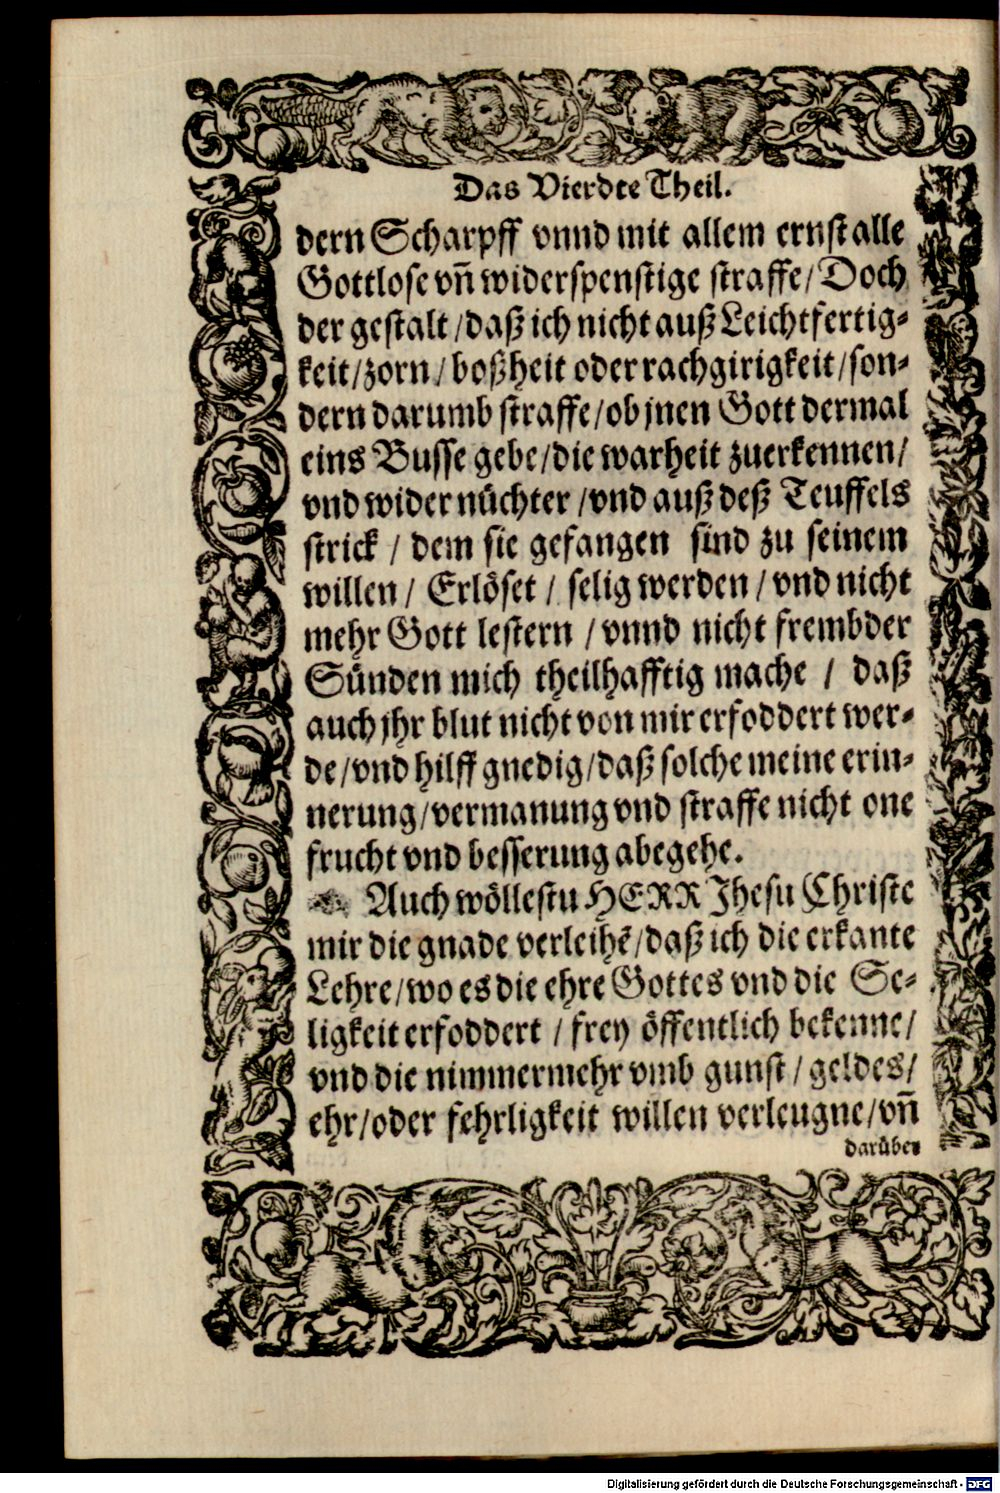 Das Vierdte Theil.
dern Scharpff vnnd mit allem ernst alle
Gottlose vñ widerspenstige straffe/ Doch
der gestalt /daß ich nicht auß Leichtfertig-
keit/zorn/ boßheit oder rachgirigkeit/son-
dern darumb straffe/ob jnen Gott dermal
eins Busse gebe/die warheit zuerkennen/
vnd wider nüchter /vnd auß deß Teuffels
strick / dem sie gefangen sind zu seinem
willen/ Erlöset / selig werden / vnd nicht
mehr Gott lestern / vnnd nicht frembder
Sünden mich theilhafftig mache / daß
auch jhr blut nicht von mir erfoddert wer-
de/vnd hilff gnedig/daß solche meine erin-
nerung/vermanung vnd straffe nicht one
frucht vnd besserung abegehe.
Auch wöllestu HERR Jhesu Christe
mir die gnade verleihẽ/daß ich die erkante
Lehre/wo es die ehre Gottes vnd die Se-
ligkeit erfoddert / frey öffentlich bekenne/
vnd die nimmermehr vmb gunst / geldes/
ehr/oder fehrligkeit willen verleugne/vñ
darüber
Digitalisierung gefördert durch die Deutsche Forschungsgemeinschaft - DFG